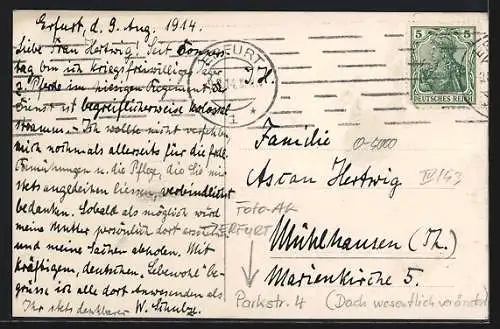 Erfurt, d. 9. Aug. 1914.
Liebe Frau Hertwig! Seit Donners-
tag bin ich Kriegsfreiwilliger
2 Pferde im hiesigen Regiment. Der
Dienst ist begreiflicherweise kolossal
stramm. - Ich wollte nicht verfehlen
mich nochmals allerseits für die
Bemühungen u. die Pflege, die Sie mir
stets angedeihen liessen, verbindlichst
bedanken. Sobald als möglich wird
meine Mutter persönlich dort erscheinen
und meine Sachen abholen. Mit
kräftigem, deutschen "Lebewohl" be-
grüsse ich alle dort Anwesenden als
Ihr stets dankbarer W. Schulze.
ERFURT
1
5
DEUTSCHES REICH
Familie
Ascan Hertwig
IV/43
Foto-AK
ERFURT
Mühlhausen (Th.)
Marienkirche 5.
Parkstr. 4 (Dach wesentlich verändert)